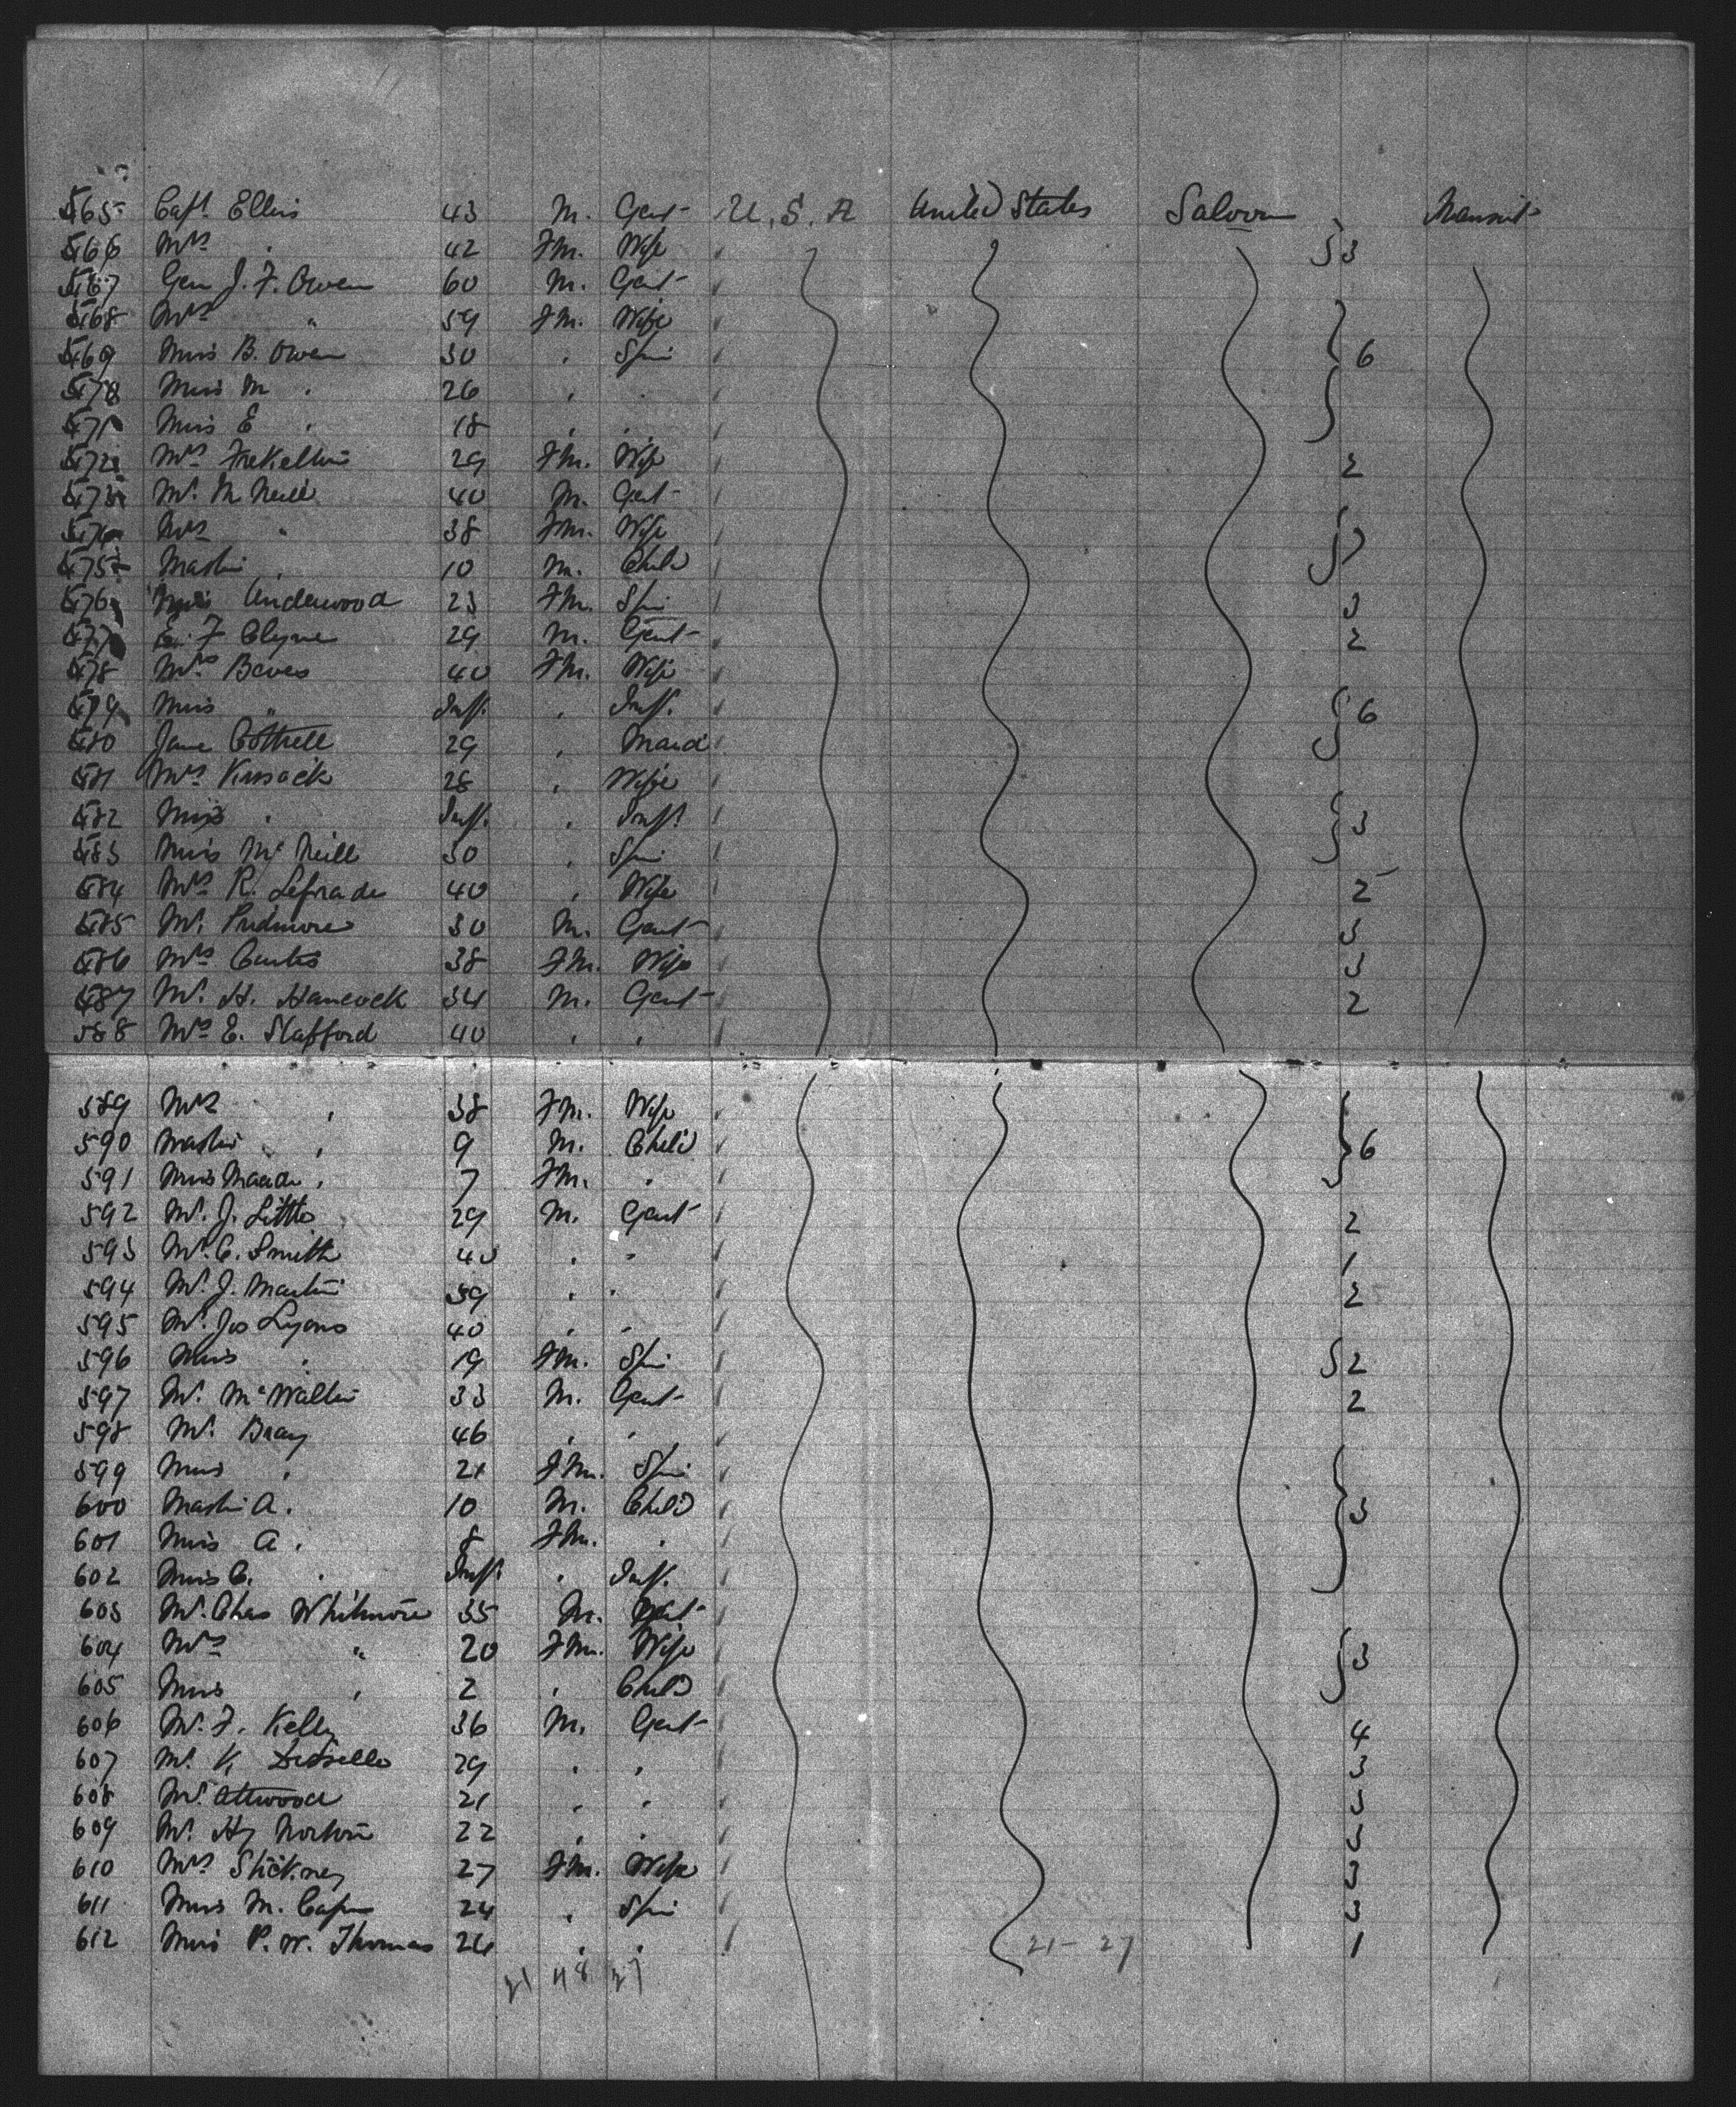 565 Capt. Ellis 43 M. Gent U.S.A United States Saloon Transit
566 Mrs " 42 Fm. Wife 3
567 Gen J. F. Owen 60 M. Gent
568 Mrs " 59 Fm. Wife
569 Miss B. Owen 30 " Spin 6
570 Miss M " 26 " "
571 Miss E " 18 " "
572 Mrs 29 Fm. Wife 2
573 Mr. McNeill 40 M. Gent
574 Mrs " 38 Fm. Wife
575 Master " 10 M. Child
576 Miss Underwood 23 Fm. Spin 3
577 E. F Clyne 29 M. Gent 2
578 Mrs Baves 40 Fm. Wife
579 Miss " Inft. " Inft. 6
580 Jane Cottrell 29 " Maid
581 Mrs Kussack 28 " Wife
582 Miss " Inft. " Inft. 3
583 Miss McNeill 30 " Spin
584 Mrs R. 40 " Wife 2
585 Mr. Pridmore 30 M. Gent 3
586 Mrs Curtis 38 Fm. Wife 3
587 Mr. H. Hancock 34 M. Gent 2
588 Mr E. Stafford 40 " "
589 Mrs " 38 Fm. Wife
590 Master " 9 M. Child 6
591 Miss Maade " 7 Fm. "
592 Mr. J. Little 29 M. Gent 2
593 Mr. C. Smith 40 " " 1
594 Mr. J. Martin 39 " " 2
595 Mr. Jos Lyons 40 " "
596 Miss " 19 Fm. Spin 2
597 Mr. McWalter 33 M. Gent 2
598 Mr. Bray 46 " "
599 Miss " 21 Fm. Spin
600 Master A. 10 M. Child 3
601 Miss A. 8 Fm. "
602 Miss C. " Inft. " Inft.
603 Mr. Chas Whitmore 35 M. Gent
604 Mrs " 20 Fm. Wife 3
605 Miss " 2 " Child
606 Mr. F. Kelly 36 M. Gent 4
607 Mr. K. 29 " " 3
608 Mr. Attwood 21 " " 3
609 Mr. Hy Norton 22 " " 3
610 Mrs Stickney 27 Fm. Wife 3
611 Miss M. Capen 24 " Spin 3
612 Miss P. W. Thomas 24 " " 21-27 1
21 48 27